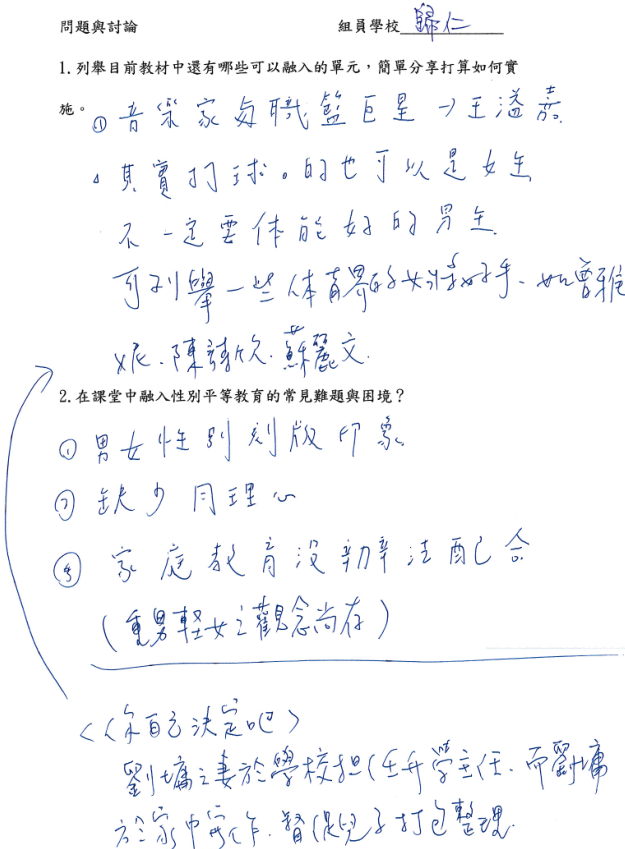 問題與討論 組員學校 歸仁
1. 列舉目前教材中還有哪些可以融入的單元，簡單分享打算如何實
施。① 音樂家 兼職籃巨星→王溢嘉
其實打球。的也可以是女生
不一定要体能好的男生
可列舉一些体育界的女將好手、如曾雅
妮、陳詩欣、蘇麗文.
2. 在課堂中融入性別平等教育的常見難題與困境？
① 男女性別刻版印象
② 缺少同理心
③ 家庭教育沒辦法配合
(重男輕女之觀念尚存)
<<你自己決定吧>
劉墉之妻於學校担任升學主任、而劉墉
於家中寫作、督促兒子打包整理.